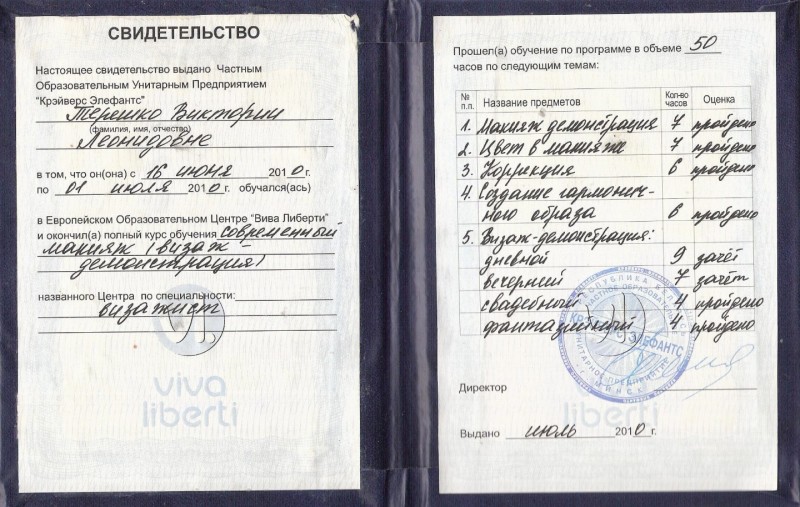 СВИДЕТЕЛЬСТВО
Настоящее свидетельство выдано Частным
Образовательным Унитарным Предприятием
"Крэйверс Элефантс"
Терешко Виктории
(фамилия, имя, отчество)
Леонидовне
в том, что он(она) с 16 июня 2010г.
по 01 июля 2010г. обучался(ась)
в Европейском Образовательном Центре "Вива Либерти"
и окончил(а) полный курс обучения современный
макияж (визаж-
демонстрация)
названного Центра по специальности:
визажист
viva
liberti
Прошел(а) обучение по программе в объеме 50
часов по следующим темам:
№ п.п. Название предметов Кол-во часов Оценка
1. Макияж демонстрация 7 пройдено
2. Цвет в макияже 7 пройдено
3. Коррекция 6 пройдено
4. Создание гармонич-
ного образа 6 пройдено
5. Визаж-демонстрация:
дневной 9 зачёт
вечерний 7 зачёт
свадебный 4 пройдено
фантазийный 4 пройдено
Директор
liberti
Выдано июль 2010 г.